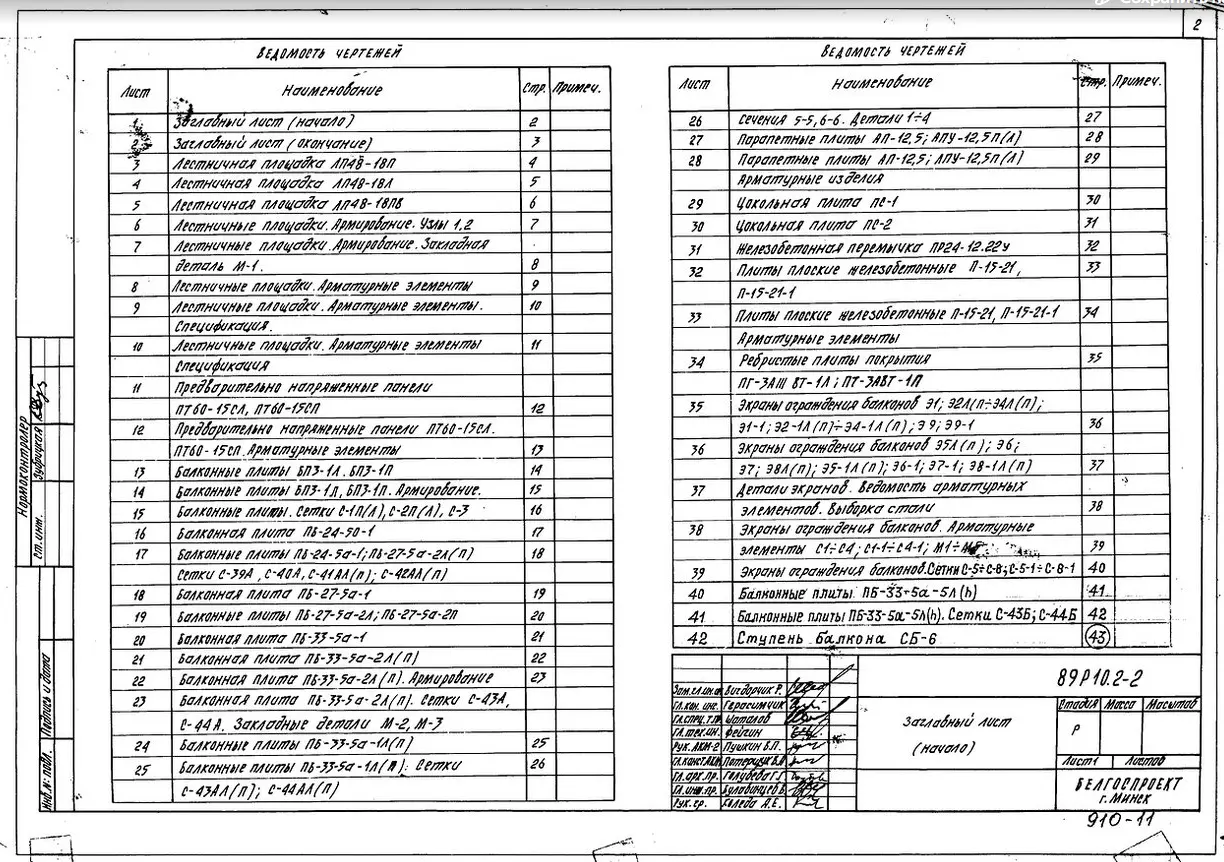 Сохранить
2
Ведомость чертежей
Лист Наименование Стр. Примеч.
1 Заглавный лист (начало) 2
2 Заглавный лист (окончание) 3
3 Лестничная площадка ЛП48-18П 4
4 Лестничная площадка ЛП48-18Л 5
5 Лестничная площадка ЛП48-18ПВ 6
6 Лестничные площадки. Армирование. Узлы 1,2 7
7 Лестничные площадки. Армирование. Закладная
деталь М-1. 8
8 Лестничные площадки. Арматурные элементы 9
9 Лестничные площадки. Арматурные элементы. 10
Спецификация.
10 Лестничные площадки. Арматурные элементы 11
Спецификация
11 Предварительно напряженные панели
ПТ60-15СЛ, ПТ60-15СП 12
12 Предварительно напряженные панели ПТ60-15СЛ.
ПТ60-15СП. Арматурные элементы 13
13 Балконные плиты БП3-1Л. БП3-1П 14
14 Балконные плиты БП3-1Л, БП3-1П. Армирование. 15
15 Балконные плиты. Сетки С-1П(Л), С-2П(Л), С-3 16
16 Балконная плита ПБ-24-5а-1 17
17 Балконные плиты ПБ-24-5а-1; ПБ-27-5а-2Л(П) 18
Сетки С-39А, С-40А, С-41АЛ(П); С-42АЛ(П)
18 Балконная плита ПБ-27-5а-1 19
19 Балконные плиты ПБ-27-5а-2Л; ПБ-27-5а-2П 20
20 Балконная плита ПБ-33-5а-1 21
21 Балконная плита ПБ-33-5а-2Л(П) 22
22 Балконная плита ПБ-33-5а-2Л(П). Армирование 23
23 Балконная плита ПБ-33-5а-2Л(П). Сетки С-43А,
С-44А. Закладные детали М-2, М-3
24 Балконные плиты ПБ-33-5а-1Л(П) 25
25 Балконные плиты ПБ-33-5а-1Л(П). Сетки 26
С-43АЛ(П); С-44АЛ(П)
Ведомость чертежей
Лист Наименование Стр. Примеч.
26 Сечения 5-5, 6-6. Детали 1÷4 27
27 Парапетные плиты АП-12,5; АПУ-12,5П(Л) 28
28 Парапетные плиты АП-12,5; АПУ-12,5П(Л) 29
Арматурные изделия
29 Цокольная плита ПС-1 30
30 Цокольная плита ПС-2 31
31 Железобетонная перемычка ПР24-12.22у 32
32 Плиты плоские железобетонные П-15-21, 33
П-15-21-1
33 Плиты плоские железобетонные П-15-21, П-15-21-1 34
Арматурные элементы
34 Ребристые плиты покрытия 35
ПГ-3АШ ВТ-1Л; ПТ-3АВТ-1П
35 Экраны ограждения балконов Э1; Э2Л(П)÷Э4Л(П);
Э1-1; Э2-1Л(П)÷Э4-1Л(П); Э9; Э9-1 36
36 Экраны ограждения балконов Э5Л(П); Э6;
Э7; Э8Л(П); Э5-1Л(П); Э6-1; Э7-1; Э8-1Л(П) 37
37 Детали экранов. Ведомость арматурных
элементов. Выборка стали 38
38 Экраны ограждения балконов. Арматурные
элементы С1÷С4; С1-1÷С4-1; М1÷ 39
39 Экраны ограждения балконов. Сетки С-5÷С-8; С-5-1÷С-8-1 40
40 Балконные плиты ПБ-33-5а-5Л(п) 41
41 Балконные плиты ПБ-33-5а-5Л(п). Сетки С-43Б; С-44Б 42
42 Ступень балкона СБ-6 43
Нормоконтролер
ст. инж.
Подпись и дата
Инв. № подл.
Зам.гл.инж. Вигдорчик Р.
Гл.кон. инс. Герасимчик
Гл.спец. Т.П. Шаталов
Гл.тех.ин. Фейгин
Рук. АКМ-2 Пушкин Б.П.
Гл.конст.
Гл.арх.пр. Голубева Г.
Гл.инж.пр. Булавинцев Б.
Рук. гр. Коледа А.Е.
89Р10.2-2
Заглавный лист
(начало)
Стадия Масса Масштаб
Р
Лист 1 Листов
БЕЛГОСПРОЕКТ
г. Минск
910-11